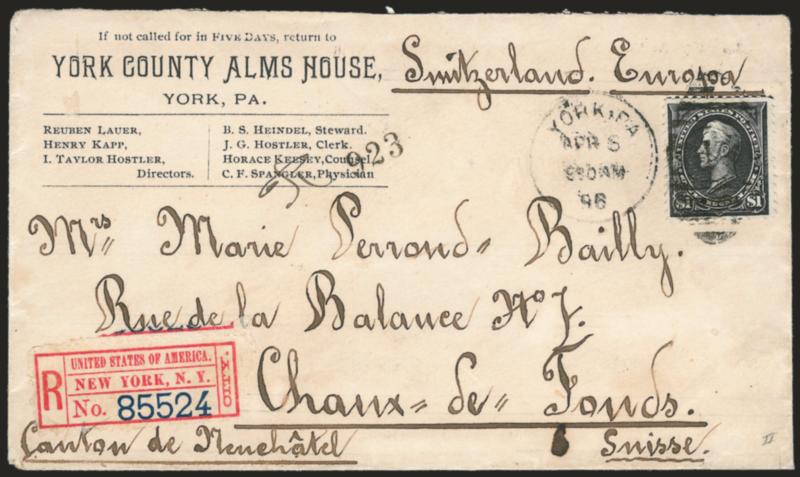 If not called for in FIVE DAYS, return to
YORK COUNTY ALMS HOUSE,
YORK, PA.
REUBEN LAUER,
HENRY KAPP,
I. TAYLOR HOSTLER,
Directors.
B. S. HEINDEL, Steward.
J. G. HOSTLER, Clerk.
HORACE KEESEY, Counsel.
C. F. SPANGLER, Physician
Switzerland. Europa
R 923
YORK, PA
APR 8
96
$1 $1
Mrs Marie Perrond-Bailly.
Rue de la Balance No J.
UNITED STATES OF AMERICA.
R NEW YORK, N. Y.
No. 85524
Chaux-de-Fonds.
Canton de Neuchâtel
Suisse.